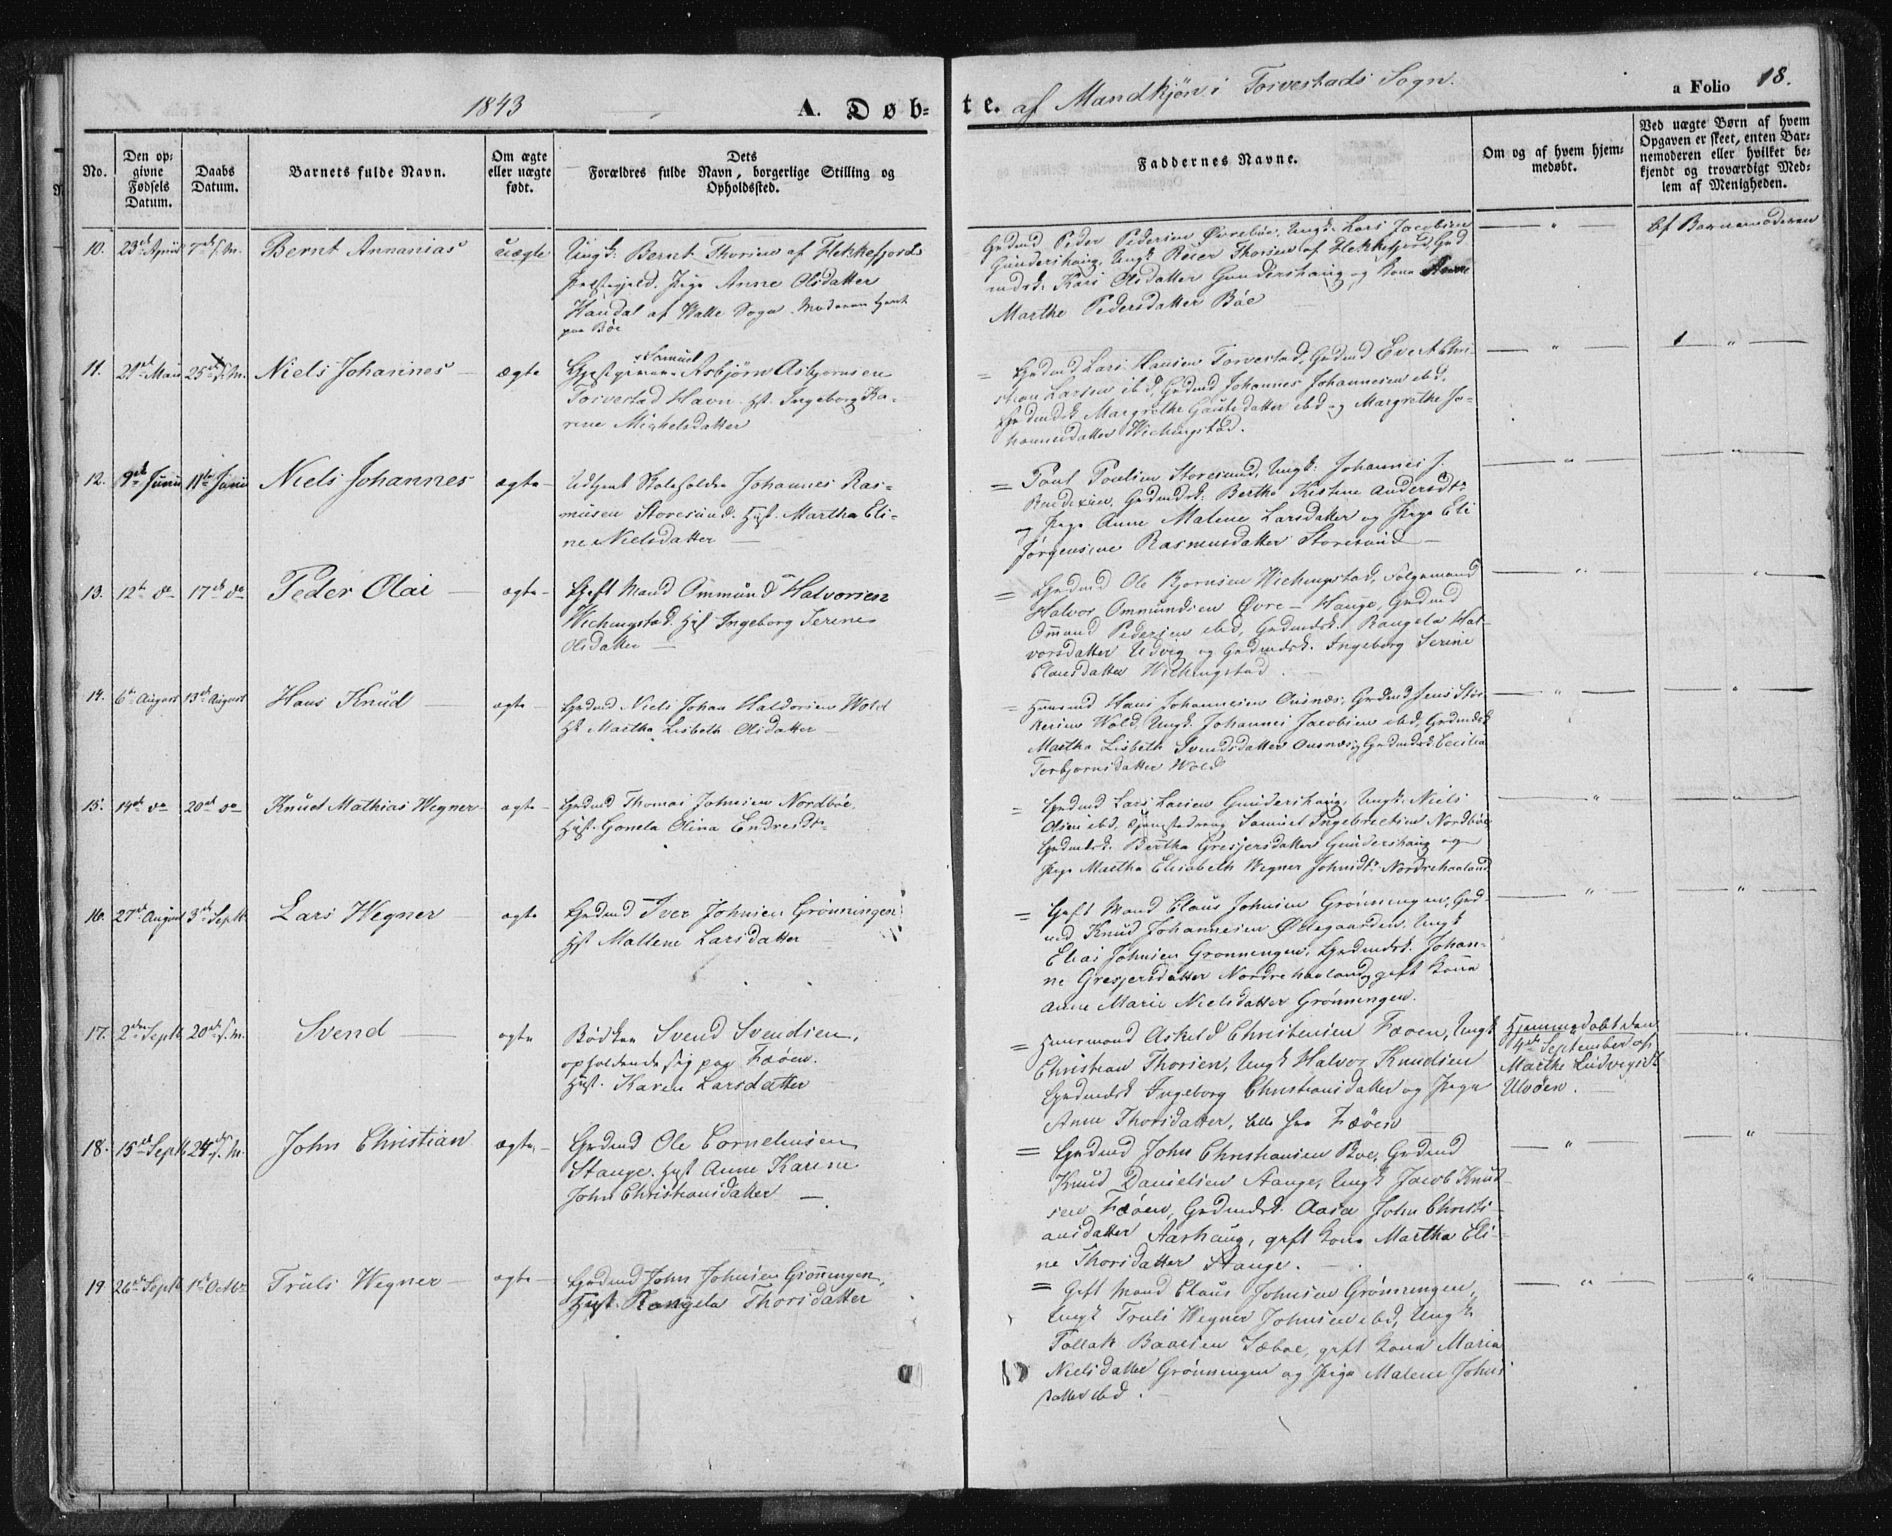 1843
A. Døb-
te. af Mandkjøn i Torvestads Sogn.
a Folio 18.
No.
Den op-
givne
Fødsels
Datum.
Daabs
Datum.
Barnets fulde Navn.
Om ægte
eller uægte
født.
Dets
Forældres fulde Navn, borgerlige Stilling og
Opholdssted.
Faddernes Navne.
Om og af hvem hjem-
medøbt.
Ved uægte Børn af hvem
Opgaven er skeet, enten Bar-
nemoderen eller hvilket be-
kjendt og troværdigt Med-
lem af Menigheden.
10. 23de April 7de s. M. Bernt Annanias uægte
Ungk: Bernt Thorsen af Flekkefjords
Præstegjeld. Pige Anne Olsdatter
Haudal af Halle Sogn. Moderen hjemt
paa Böe
Grdmd Peder Pedersen Øvrebøe, Ungk. Lars Jacobsen
Gundershaug, Ungk Reier Thorsen af Flekkefjord, Grd
mdsk. Kari Olsdatter Gundershaug og Kona
Marthe Pedersdatter Böe
— " —
af Barnemoderen
11. 21de Mai 25de s. M. Niels Johannes — ægte
Samuel
Gjestgiver Asbjørn Asbjørnsen
Torvestad Havn. Hst. Ingeborg Ka-
rine Michelsdatter
= Grdmd Lars Hansen Torvestad, Grdmd Evert Chri-
stian Larsen ibd, Grdmd Johannes Johannesen ibd,
Grdmdsk Margrethe Gautsdatter ibd og Margrethe Jo-
hannesdatter Wichingstad.
— " —
— " —
12. 9de Juni 11te Juni Niels Johannes ægte —
Udtjent Skoleholder Johannes Ras-
musen Storesund. Hust. Martha Eli-
ne Nielsdatter —
= Poul Poulsen Storesund, Ungk: Johannes J.
Bendixen, Grdmdsk: Bertha Kistine Andersdtr
og Pige Anne Malene Larsdatter og Pige Eli
Jørgensine Rasmusdatter Storesund —
— " —
— " —
13. 12te do 17de do Peder Olai — ægte —
Gift Mand Ommund Halvorsen
Wichingstad. Hust Ingeborg Serine
Olsdatter —
= Grdmd Ole Bjørnsen Wichingstad, Følgemand
Halvor Ommundsen Øvre-Hauge, Grdmd
Omund Pedersen ibd, Grdmdsk. Rangela Hal-
vorsdatter Udvig og Grdmdsk. Ingeborg Serine
Elansdatter Wichingstad.
— " —
— " —
14. 6te August 13de August Hans Knud — ægte —
Grdmd Niels Johan Haldorsen Wold
Hst Martha Lisbeth Olsdatter —
= Huusmd Hans Johannesen Ousnæs, Grdmd Jens Stör-
kersen Wold, Ungk. Johannes Jacobsen ibd, Grdmdsk
Martha Lisbeth Svendsdatter Ousnæs, Grdmdsk Cecilia
Torbjornsdatter Wold
— " —
— " —
15. 14de do 20de do Knud Mathias Wegner — ægte —
Grdmd Thomas Johnsen Nordbøe,
Hust. Gonela Olina Endresdtr
= Grdmd Lars Larsen Gundershaug, Ungk. Niels
Olsen ibd, Tjenestedreng Samuel Ingebrectsen Nordbøe,
Grdmdsk. Bertha Gresjersdatter Gundershaug og
Pige Martha Elisabeth Wegner Johnsdtr Nordrehaaland
— " —
— " —
16. 27de August 3de Septbr Lars Wegner — ægte
Grdmd Iver Johnsen Grønningen
Hst Mallene Larsdatter
= Gift Mand Claus Johnsen Grønningen, Grd-
md Knud Johannesen Ødegaarden, Ungk
Elias Johnsen Gronningen, Grdmdsk. Johan-
ne Gresjersdatter Nordrehaaland og gift Kona
Anne Marie Nielsdatter Grønningen.
— " —
— " —
17. 2den Septbr 20de s. M. Svend — ægte
Bødker Svend Svendsen,
opholdende sig paa Fæöen.
Hust. Karen Larsdatter
= Huusmand Askild Christensen Fæoen, Ungk
Christian Thorsen, Ungk Halvor Knudsen
Grdmdsk Ingeborg Christiansdatter og Pige
Anne Thorsdatter, alle fra Fæöen —
Hjemmedøbt den
4de September af
Marthe Ludvigsdtr
Utvöen.
— " —
18. 15de Septbr 24de s. M. John Christian ægte, —
Grdmd Ole Corneliusen
Stange. Hust Anne Karine
John Christiansdatter —
= Grdmd John Christiansen Boe, Grdmd
Knud Danielsen Stange, Ungk Jacob Knud-
sen Fæöen, Grdmdsk. Aasa John Christi-
ansdatter Aarhaug, gift Kone Martha Eli-
ne Thorsdatter Stange. —
— " —
— " —
19 26de Septbr 1ste Octbr Truls Wegner — ægte —
Grdmd John Johnsen Gronningen,
Hust. Rangela Thorsdatter
= Gift Mand Claus Johnsen Grønningen,
Ungk Truls Wegner Johnsen ibd, Ungk
Tollak Baarsen Sæboe, gift Kona Maria
Nielsdatter Grønningen og Pige Malene Johns
datter ibd. —
— " —
— " —